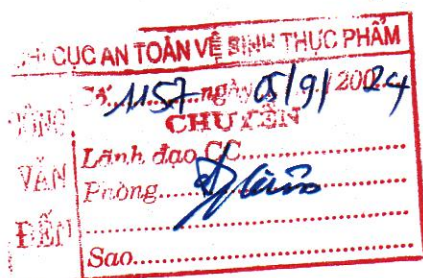 CHI CỤC AN TOÀN VỆ SINH THỰC PHẨM
CÔNG VĂN ĐẾN
Số 1157 ngày 05/9/2024
CHUYỂN
Lãnh đạo CC
Phòng
Sao